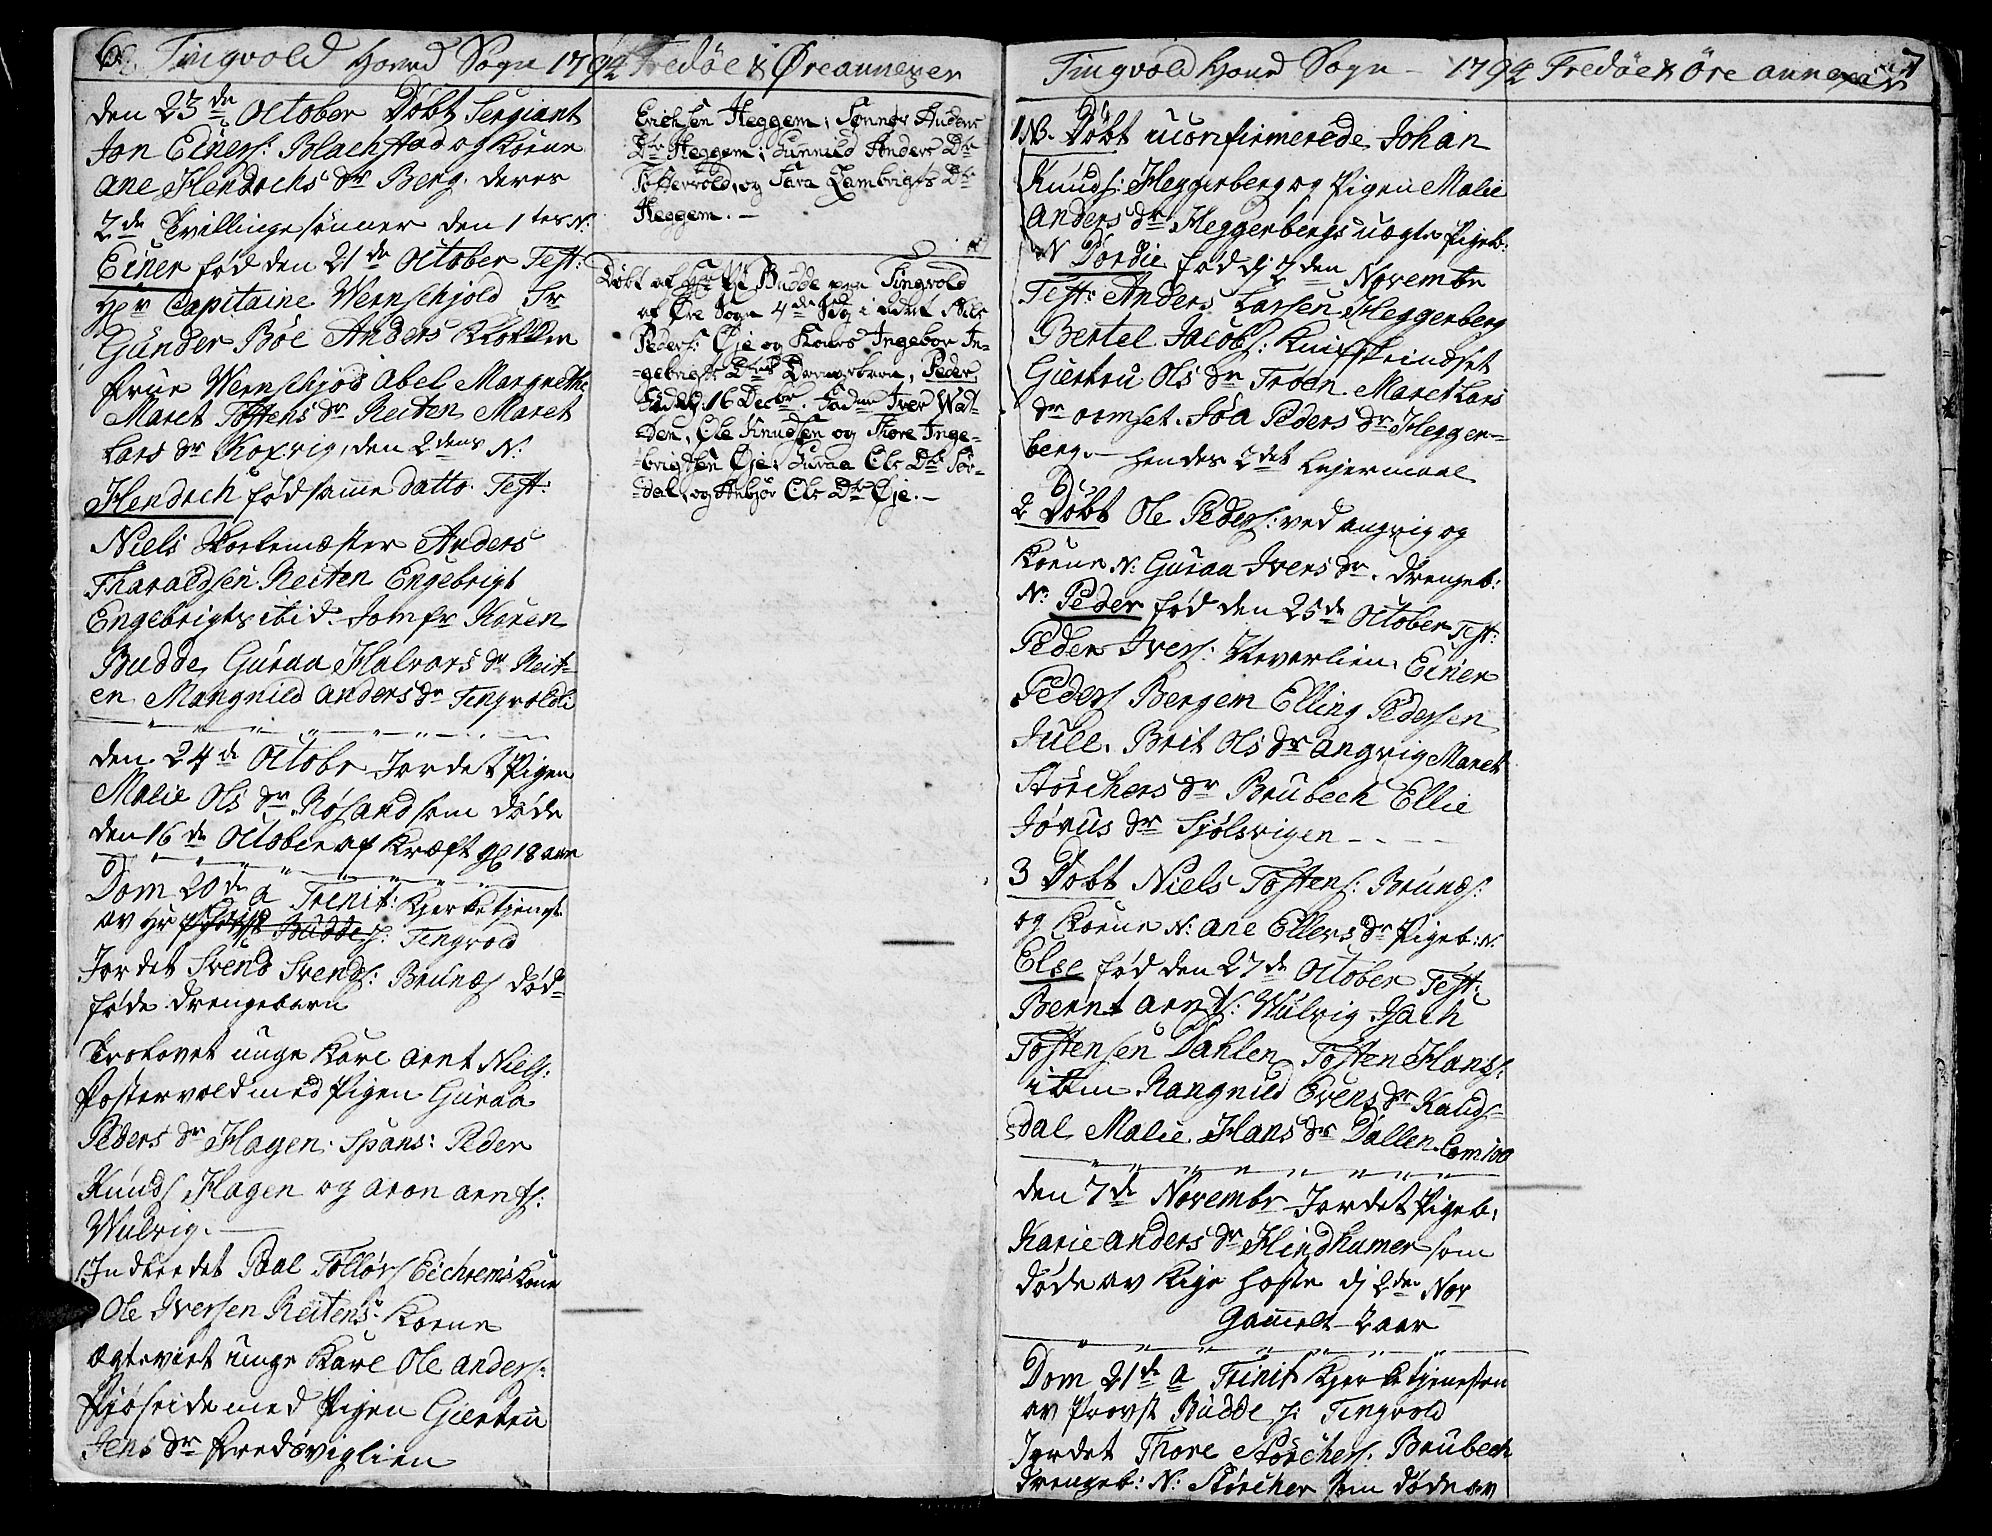 6 Tingvold Hoved Sogn 1794 Fredøe & Øre annexer
den 23de October Døbt Sergiant
Jon Einers: Blachstad og Kone
Ane Hendrchs Dr Berg. deres
2de Tvillingesønner den 1tes N:
Einer fød den 21de October Test:
Hr Capitaine Wernschjold Sr
Gunder Böe Anders Klokker
frue Wernschjod Abel Margrethe
Maret Tostens Dr Reiten Maret
Lars Dr Koxvig, den 2dens N:
Hendrch fød samme datto. Test:
Niels Skolemæster Anders
Tharaldsen Reiten Engebrigt
Engebrigts ibid. Jomfr Karen
Budde Guraa Halvors Dr Reit-
en Mangnild Anders Dr Tingvold
den 24de Octobr Jordet Pigen
Malie Ols Dr Røsand som døde
den 16de October af Kræft gl 18 aar
Dom 20de a Trenit: Kjerketjenest
av Hr Budde Tingvold
Jordet Svend Svends: Brunes død-
føde drengebarn
Trolovet unge Karl Arnt Niels:
Postervold med Pigen Guraa
Peders Dr Hagen. Spons: Peder
Knuds Hagen og Aron Arnts:
Wulvig.
Indleedet Paal Tolløvs Eichrems Kone
Ole Iversen Reitens Kone
Ægteviet unge Karl Ole Anders:
med Pigen Giertru
Jens Dr Fredsviglien
Erichsen Heggem, Anders
Dr Heggem, Gunnild Anders Dr
og Sara Lambrigts Dr
Heggem.
Døbt af Hr Budde paa Tingvold
af Øre Sogn 4de i Advt Niels
Peders: Øje og Kones Ingebor In-
gebrigts Dr Peder
fød d. 16 Decbr. Fadre Iver Wat-
ten, Ole Knudsen og Thore Inge-
brigtsen Øje, Guraa Ols Dr Sør-
dal, og Anbjør Ols Dr Øje.
Tingvold Hoved Sogn - 1794 Fredøe & Öre annexer 7
1 NB. Døbt uconfirmerede Johan
Knuds: Heggerberg og Pigen Malie
Anders Dr Heggerbergs uægte Pigeb:
N Dordie fød dj 2den Novembr
Test: Anders Larsen Heggerberg
Bertel Jacobs:
Giertru Ols Dr Troen Maret Lars
Dr Aemset. Goa Peders Dr Hegger-
berg. - hendes 2det Lejermaal
2 Døbt Ole Peders: ved Angvig og
Kone N: Guraa Ivers Dr. Drengeb:
N: Peder fød den 25de October Test:
Peder Ivers: Einer
Peders Bergem Elling Pedersen
Jule. Brit Ols Dr Angvig Maret
Störchers Dr Brubech Ellie
Jönus Dr Sjölsvigen
3 Døbt Niels Tostens: Brunes:
og Kone N: Ane Ellers Dr Pigeb: N:
Else fød den 27de October Test:
Bernt Arnts: Wulvig Isach
Tostensen Dahlen Tosten Hans:
item Rangnild Evens Dr Knuds-
dal Malie Hans Dr Dallen
den 7de Novembr Jordet Pigeb:
Karie Anders Dr Hindhamer som
døde av Kige hoste dj 2den Nov
Gamelt 2 aar
Dom 21de a Trinit Kjerketjenesten
av Provst Budde Tingvold
Jordet Thore Störchers: Brubech
drengeb: N: Störcher som døde av